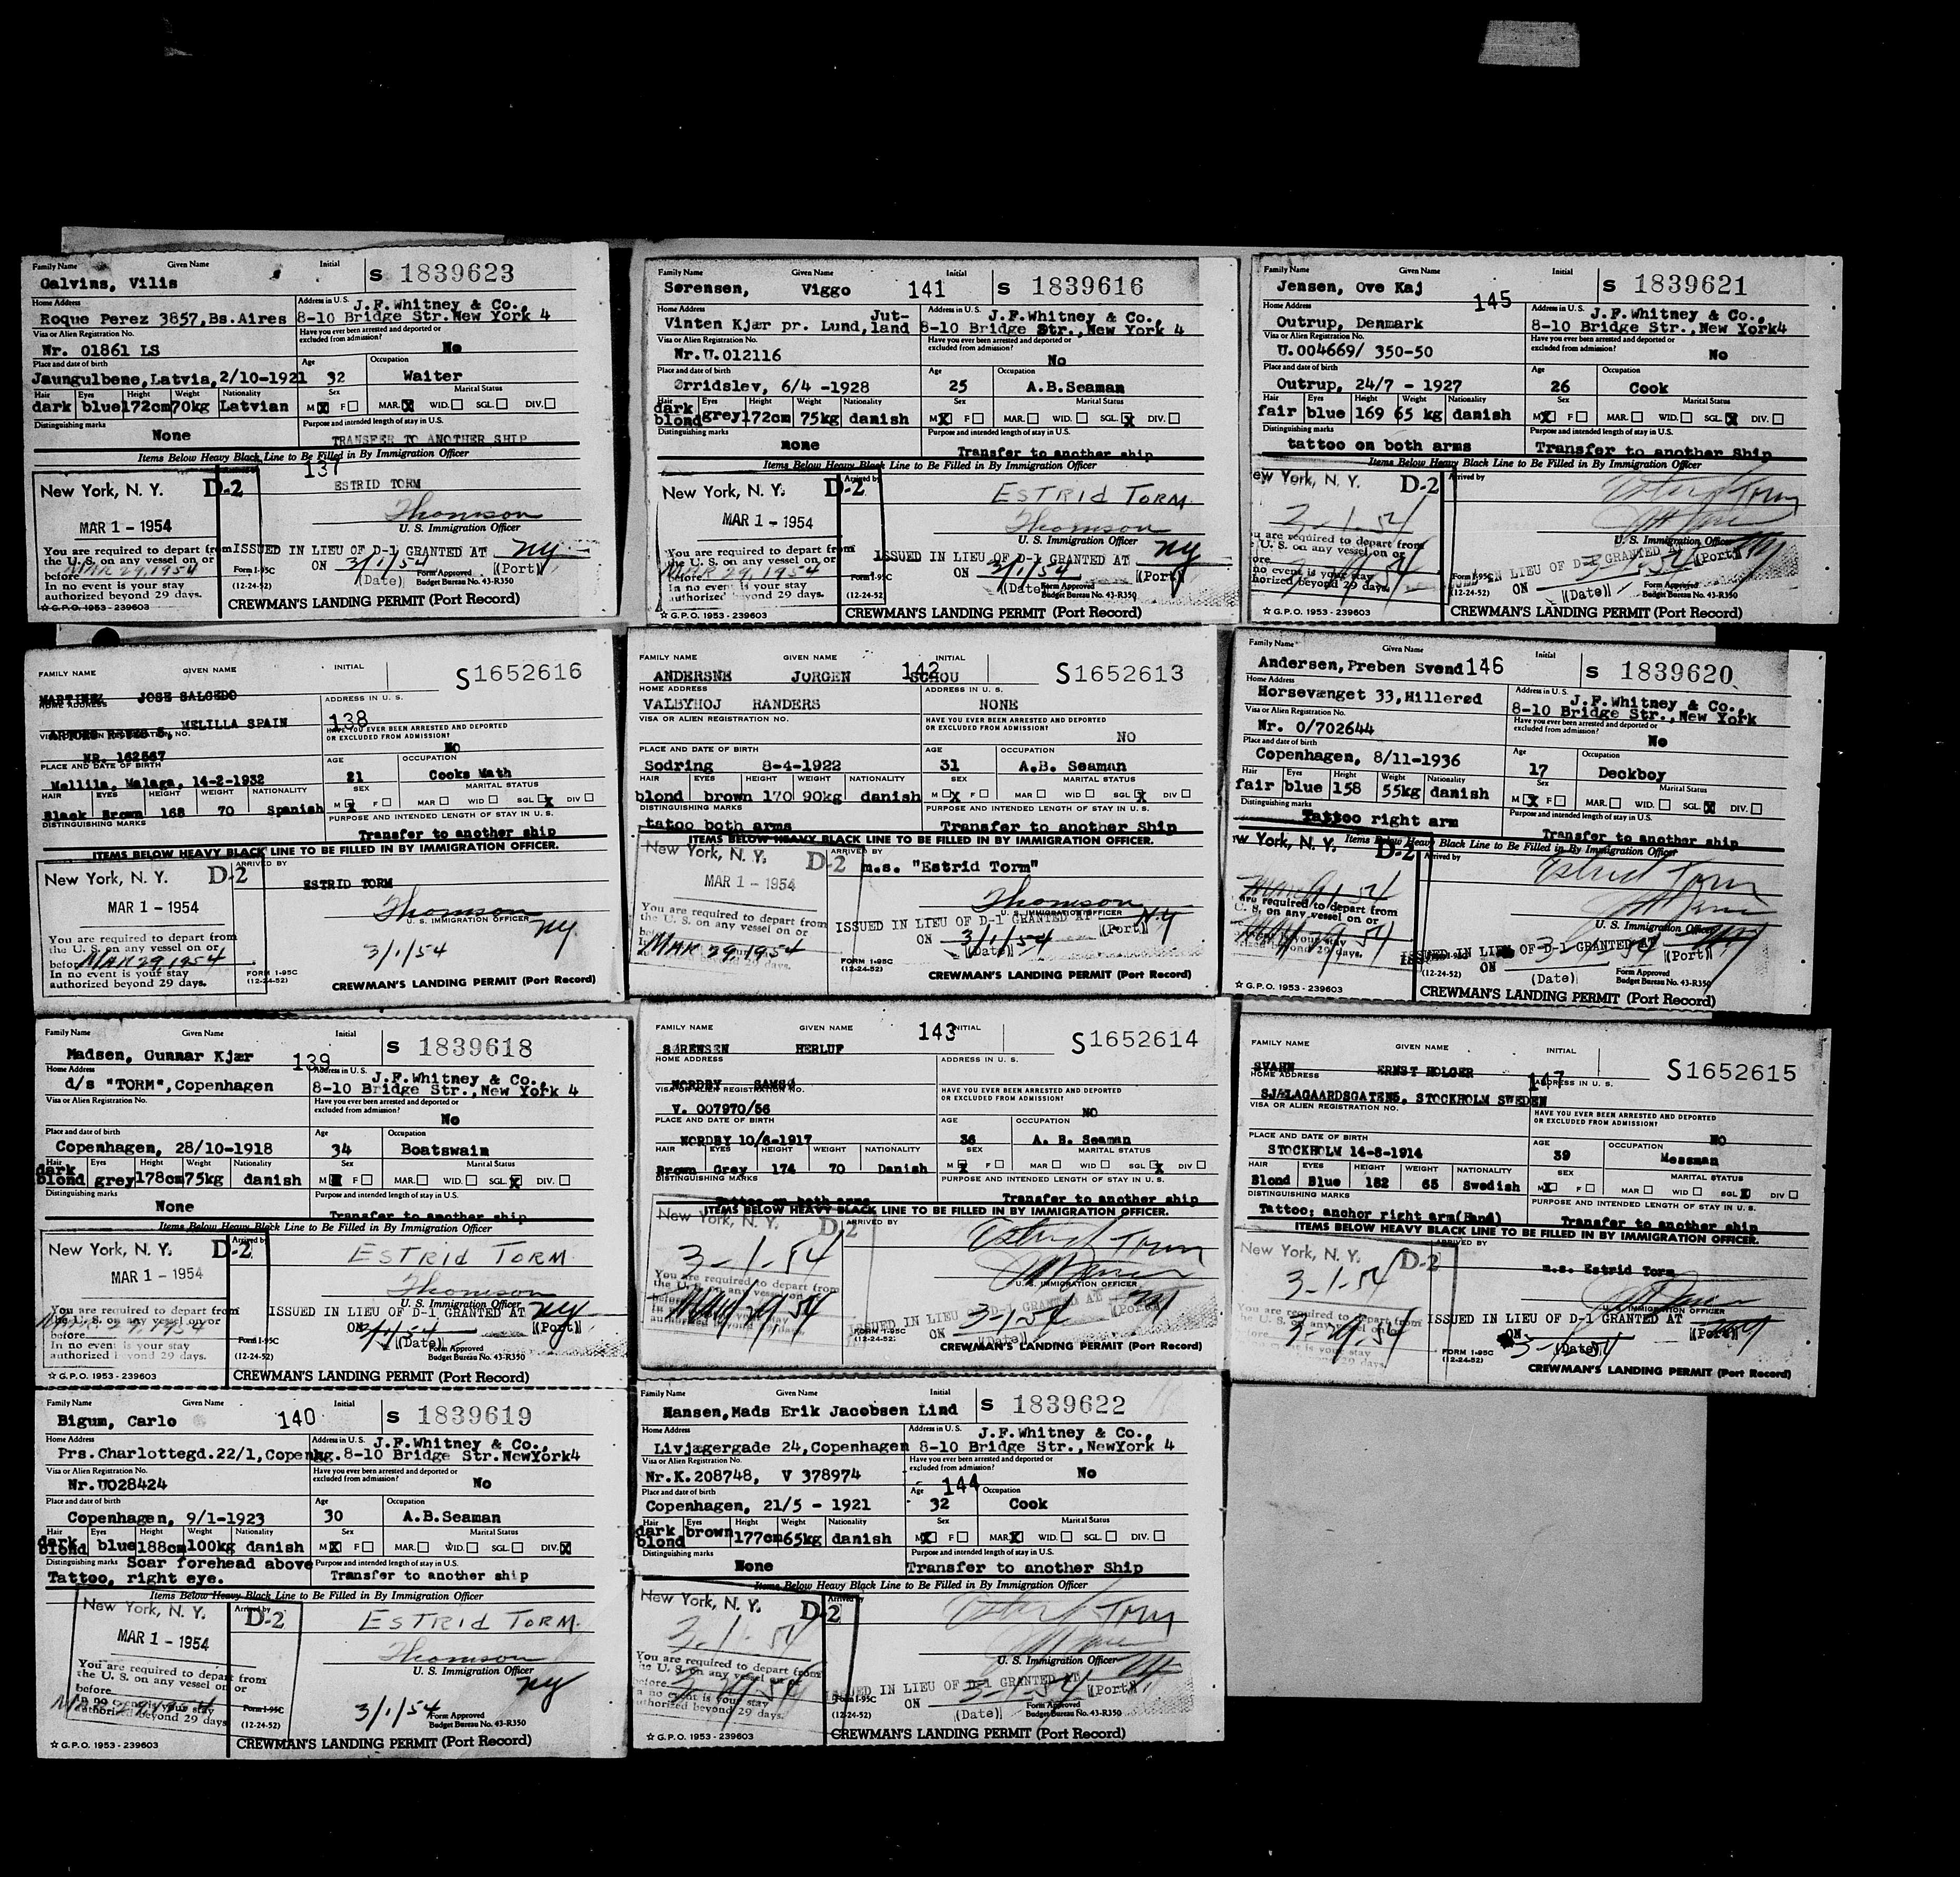 Family Name Given Name Initial S 1839623
Galvins, Vilis
Home Address Address in U.S. J.F.Whitney & Co.,
Roque Perez 3857,Bs.Aires 8-10 Bridge Str.New York 4
Visa or Alien Registration No. Have you ever been arrested and deported or excluded from admission?
Nr. 01861 LS No
Place and date of birth Age Occupation
Jaungulbene,Latvia,2/10-1921 32 Waiter
Hair Eyes Height Weight Nationality Sex Marital Status
dark blue 172cm 70kg Latvian M X F MAR. X WID. SGL. DIV.
Distinguishing marks Purpose and intended length of stay in U.S.
None TRANSFER TO ANOTHER SHIP
Items Below Heavy Black Line to Be Filled in By Immigration Officer
137
New York, N. Y. D-2 ESTRID TORM
Thomson
MAR 1 - 1954 U. S. Immigration Officer
You are required to depart from ISSUED IN LIEU OF D-1 GRANTED AT NY
the U. S. on any vessel on or ON 3/1/54 (Port)
before MAR 29, 1954 Form I-95C (Date) Form Approved
In no event is your stay (12-24-52) Budget Bureau No. 43-R350
authorized beyond 29 days.
☆ G.P.O. 1953-239603 CREWMAN'S LANDING PERMIT (Port Record)
FAMILY NAME GIVEN NAME INITIAL S1652616
MARTINEZ JOSE SALCEDO
HOME ADDRESS ADDRESS IN U. S.
MELILLA SPAIN 138
VISA OR ALIEN REGISTRATION NO. HAVE YOU EVER BEEN ARRESTED AND DEPORTED OR EXCLUDED FROM ADMISSION?
NR. 162567 NO
PLACE AND DATE OF BIRTH AGE OCCUPATION
Mellila, Malaga, 14-2-1932 21 Cooks Math
HAIR EYES HEIGHT WEIGHT NATIONALITY SEX MARITAL STATUS
Black Brown 168 70 Spanish M X F MAR WID SGL X DIV
DISTINGUISHING MARKS PURPOSE AND INTENDED LENGTH OF STAY IN U. S.
Transfer to another ship
ITEMS BELOW HEAVY BLACK LINE TO BE FILLED IN BY IMMIGRATION OFFICER.
New York, N. Y. D-2 ARRIVED BY
ESTRID TORM
MAR 1 - 1954 Thomson
U. S. IMMIGRATION OFFICER
You are required to depart from NY
the U. S. on any vessel on or 3/1/54
before MAR 29, 1954
In no event is your stay FORM I-95C
authorized beyond 29 days. (12-24-52) CREWMAN'S LANDING PERMIT (Port Record)
Family Name Given Name Initial S 1839618
Madsen, Gunnar Kjær 139
Home Address Address in U.S. J.F.Whitney & Co.,
d/s "TORM",Copenhagen 8-10 Bridge Str.,New York 4
Visa or Alien Registration No. Have you ever been arrested and deported or excluded from admission?
No
Place and date of birth Age Occupation
Copenhagen, 28/10-1918 34 Boatswain
Hair Eyes Height Weight Nationality Sex Marital Status
dark blond grey 178cm 75kg danish M X F MAR. WID. SGL. X DIV.
Distinguishing marks Purpose and intended length of stay in U.S.
None Transfer to another ship
Items Below Heavy Black Line to Be Filled in By Immigration Officer
New York, N. Y. D-2 Arrived by ESTRID TORM.
MAR 1 - 1954 Thomson
U. S. Immigration Officer
You are required to depart from ISSUED IN LIEU OF D-1 GRANTED AT NY
the U. S. on any vessel on or ON 3/1/54 (Port)
before MAR 29, 1954 Form I-95C (Date) Form Approved
In no event is your stay (12-24-52) Budget Bureau No. 43-R350
authorized beyond 29 days.
☆ G.P.O. 1953-239603 CREWMAN'S LANDING PERMIT (Port Record)
Family Name Given Name Initial S 1839619
Bigum, Carlo 140
Home Address Address in U.S. J.F.Whitney & Co.,
Prs.Charlottegd.22/1,Copenhg. 8-10 Bridge Str.NewYork4
Visa or Alien Registration No. Have you ever been arrested and deported or excluded from admission?
Nr.U028424 No
Place and date of birth Age Occupation
Copenhagen, 9/1-1923 30 A.B.Seaman
Hair Eyes Height Weight Nationality Sex Marital Status
dark blond blue 188cm 100kg danish M X F MAR. WID. SGL. DIV. X
Distinguishing marks Scar forehead above Purpose and intended length of stay in U.S.
Tattoo, right eye. Transfer to another ship
Items Below Heavy Black Line to Be Filled in By Immigration Officer
New York, N. Y. D-2 Arrived by ESTRID TORM.
MAR 1 - 1954 Thomson
U. S. Immigration Officer
You are required to depart from NY
the U. S. on any vessel on or
before MAR 29, 1954 Form I-95C 3/1/54 Form Approved
authorized beyond 29 days (12-24-52) Budget Bureau No. 43-R350
☆ G.P.O. 1953-239603 CREWMAN'S LANDING PERMIT (Port Record)
Family Name Given Name Initial S 1839616
Sørensen, Viggo 141
Home Address Jut- Address in U.S. J.F.Whitney & Co.,
Vinten Kjær pr. Lund, land 8-10 Bridge Str.,New York 4
Visa or Alien Registration No. Have you ever been arrested and deported or excluded from admission?
Nr.U.012116 No
Place and date of birth Age Occupation
Ørridslev, 6/4 -1928 25 A.B.Seaman
Hair Eyes Height Weight Nationality Sex Marital Status
dark blond grey 172cm 75kg danish M X F MAR. WID. SGL. X DIV.
Distinguishing marks Purpose and intended length of stay in U.S.
none Transfer to another ship
Items Below Heavy Black Line to Be Filled in By Immigration Officer
New York, N. Y. D-2 Arrived by ESTRID TORM.
MAR 1 - 1954 Thomson
U. S. Immigration Officer
You are required to depart from ISSUED IN LIEU OF D-1 GRANTED AT NY
the U. S. on any vessel on or ON 3/1/54 (Port)
before MAR 29, 1954 Form I-95C (Date) Form Approved
In no event is your stay (12-24-52) Budget Bureau No. 43-R350
authorized beyond 29 days.
☆ G.P.O. 1953-239603 CREWMAN'S LANDING PERMIT (Port Record)
FAMILY NAME GIVEN NAME 142 INITIAL S1652613
ANDERSNE JORGEN SCHOU
HOME ADDRESS ADDRESS IN U. S.
VALBYHOJ RANDERS NONE
VISA OR ALIEN REGISTRATION NO. HAVE YOU EVER BEEN ARRESTED AND DEPORTED OR EXCLUDED FROM ADMISSION?
NO
PLACE AND DATE OF BIRTH AGE OCCUPATION
Sodring 8-4-1922 31 A.B. Seaman
HAIR EYES HEIGHT WEIGHT NATIONALITY SEX MARITAL STATUS
blond brown 170 90kg danish M X F MAR WID SGL X DIV
DISTINGUISHING MARKS PURPOSE AND INTENDED LENGTH OF STAY IN U. S.
tatoo both arms Transfer to another Ship
ITEMS BELOW HEAVY BLACK LINE TO BE FILLED IN BY IMMIGRATION OFFICER.
New York, N. Y. D-2 ARRIVED BY
m.s. "Estrid Torm"
MAR 1 - 1954 Thomson
U. S. IMMIGRATION OFFICER
You are required to depart from ISSUED IN LIEU OF D-1 GRANTED AT N.Y
the U. S. on any vessel on or ON 3/1/54 (Port)
MAR 29, 1954 (Date)
FORM I-95C
(12-24-52) CREWMAN'S LANDING PERMIT (Port Record)
FAMILY NAME GIVEN NAME 143 INITIAL S1652614
SØRENSEN HERLUF
HOME ADDRESS ADDRESS IN U. S.
NORDBY SAMSØ
VISA OR ALIEN REGISTRATION NO. HAVE YOU EVER BEEN ARRESTED AND DEPORTED OR EXCLUDED FROM ADMISSION?
V. 007970/56 NO
PLACE AND DATE OF BIRTH AGE OCCUPATION
NORDBY 10/6-1917 36 A. B. Seaman
HAIR EYES HEIGHT WEIGHT NATIONALITY SEX MARITAL STATUS
Brown Grey 174 70 Danish M X F MAR WID SGL X DIV
DISTINGUISHING MARKS PURPOSE AND INTENDED LENGTH OF STAY IN U. S.
Tattoo on both arms Transfer to another ship
ITEMS BELOW HEAVY BLACK LINE TO BE FILLED IN BY IMMIGRATION OFFICER.
New York, N. Y. D-2 ARRIVED BY Estrid Torm
3-1-54
U. S. IMMIGRATION OFFICER
You are required to depart from ISSUED IN LIEU OF D-1 GRANTED AT NY
Mar 29, 54 ON 3-1-54 (Port)
FORM I-95C (Date)
(12-24-52) CREWMAN'S LANDING PERMIT (Port Record)
Family Name Given Name Initial S 1839622
Hansen,Mads Erik Jacobsen Lind
Home Address Address in U.S. J.F.Whitney & Co.,
Livjægergade 24,Copenhagen 8-10 Bridge Str.,NewYork 4
Visa or Alien Registration No. Have you ever been arrested and deported or excluded from admission?
Nr.K.208748, V 378974 No
144
Place and date of birth Age Occupation
Copenhagen, 21/5 - 1921 32 Cook
Hair Eyes Height Weight Nationality Sex Marital Status
dark blond brown 177cm 65kg danish M X F MAR. X WID. SGL. DIV.
Distinguishing marks Purpose and intended length of stay in U.S.
None Transfer to another Ship
Items Below Heavy Black Line to Be Filled in By Immigration Officer
New York, N. Y. D-2 Arrived by Estrid Torm
3-1-54
U. S. Immigration Officer
You are required to depart from ISSUED IN LIEU OF D-1 GRANTED AT NY
the U. S. on any vessel on or ON 3-1-54 (Port)
before 3-29-54 Form I-95C (Date) Form Approved
In no event is your stay (12-24-52) Budget Bureau No. 43-R350
authorized beyond 29 days.
☆ G.P.O. 1953-239603 CREWMAN'S LANDING PERMIT (Port Record)
Family Name Given Name Initial S 1839621
Jensen, Ove Kaj 145
Home Address Address in U.S. J.F.Whitney & Co.,
Outrup, Denmark 8-10 Bridge Str.,New York4
Visa or Alien Registration No. Have you ever been arrested and deported or excluded from admission?
U.004669/ 350-50 No
Place and date of birth Age Occupation
Outrup, 24/7 - 1927 26 Cook
Hair Eyes Height Weight Nationality Sex Marital Status
fair blue 169 65 kg danish M X F MAR. WID. SGL. X DIV.
Distinguishing marks Purpose and intended length of stay in U.S.
tattoo on both arms Transfer to another Ship
Items Below Heavy Black Line to Be Filled in By Immigration Officer
ew York, N. Y. D-2 Arrived by Estrid Torm
3-1-54
U. S. Immigration Officer
u are required to depart from LIEU OF D-1 GRANTED AT NY
U. S. on any vessel on or ON 3-1-54 (Port)
no event is your stay Form I-95C (Date) Form Approved
horized beyond 29 days. (12-24-52) Budget Bureau No. 43-R350
☆ G.P.O. 1953-239603 CREWMAN'S LANDING PERMIT (Port Record)
Family Name Given Name Initial S 1839620
Andersen,Preben Svend 146
Home Address Address in U.S. J.F.Whitney & Co.,
Horsevænget 33,Hillerød 8-10 Bridge Str.,New York
Visa or Alien Registration No. Have you ever been arrested and deported or excluded from admission?
Nr. 0/702644 No
Place and date of birth Age Occupation
Copenhagen, 8/11-1936 17 Deckboy
Hair Eyes Height Weight Nationality Sex Marital Status
fair blue 158 55kg danish M X F MAR. WID. SGL. X DIV.
Distinguishing marks Purpose and intended length of stay in U.S.
Tattoo right arm Transfer to another ship
Items Below Heavy Black Line to Be Filled in By Immigration Officer
w York, N. Y. D-2 Arrived by Estrid Torm
U. S. Immigration Officer
are required to depart from ISSUED IN LIEU OF D-1 GRANTED AT
U. S. on any vessel on or ON (Port)
Form I-95C (Date) Form Approved
(12-24-52) Budget Bureau No. 43-R350
☆ G.P.O. 1953-239603 CREWMAN'S LANDING PERMIT (Port Record)
FAMILY NAME GIVEN NAME INITIAL S1652615
SVAHN ERNST HOLGER 147
HOME ADDRESS ADDRESS IN U. S.
SJÆLAGAARDSGATEN5, STOCKHOLM SWEDEN
VISA OR ALIEN REGISTRATION NO. HAVE YOU EVER BEEN ARRESTED AND DEPORTED OR EXCLUDED FROM ADMISSION?
NO
PLACE AND DATE OF BIRTH AGE OCCUPATION
STOCKHOLM 14-8-1914 39 Messman
HAIR EYES HEIGHT WEIGHT NATIONALITY SEX MARITAL STATUS
Blond Blue 182 65 Swedish M X F MAR WID SGL X DIV
DISTINGUISHING MARKS PURPOSE AND INTENDED LENGTH OF STAY IN U. S.
Tattoo; anchor right arm(Hand) Transfer to another ship
ITEMS BELOW HEAVY BLACK LINE TO BE FILLED IN BY IMMIGRATION OFFICER.
New York, N. Y. D-2 ARRIVED BY
m.s. Estrid Torm
3-1-54
U. S. IMMIGRATION OFFICER
You are required to depart from ISSUED IN LIEU OF D-1 GRANTED AT NY
the U. S. on any vessel on or ON 3-1-54 (Port)
before 3-29-54 (Date)
FORM I-95C
(12-24-52) CREWMAN'S LANDING PERMIT (Port Record)